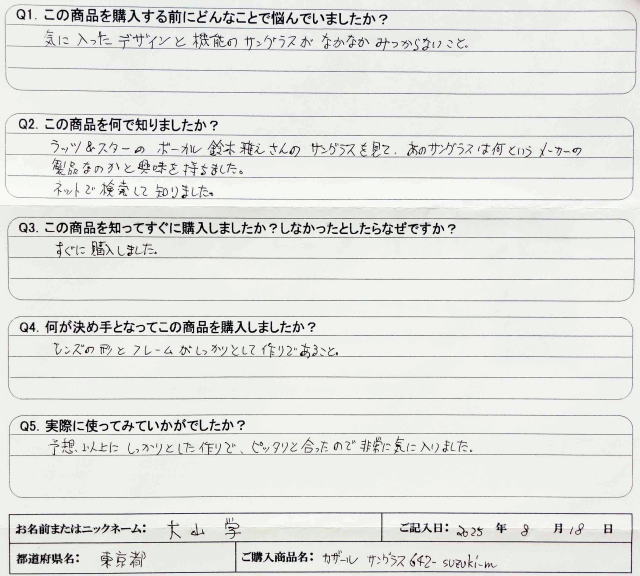 Q1. この商品を購入する前にどんなことで悩んでいましたか？
気に入ったデザインと機能のサングラスがなかなかみつからないこと。
Q2. この商品を何で知りましたか？
ラッツ&スターのボーカル鈴木雅之さんのサングラスを見て、あのサングラスは何というメーカーの
製品なのかと興味を持ちました。
ネットで検索して知りました。
Q3. この商品を知ってすぐに購入しましたか？しなかったとしたらなぜですか？
すぐに購入しました。
Q4. 何が決め手となってこの商品を購入しましたか？
レンズの形とフレームがしっかりとして作りであること。
Q5. 実際に使ってみていかがでしたか？
予想以上にしっかりとした作りで、ピッタリと合ったので非常に気に入りました。
お名前またはニックネーム： 大山 学 ご記入日： 2025 年 8 月 18 日
都道府県名： 東京都 ご購入商品名： カザール サングラス 642-suzuki-m